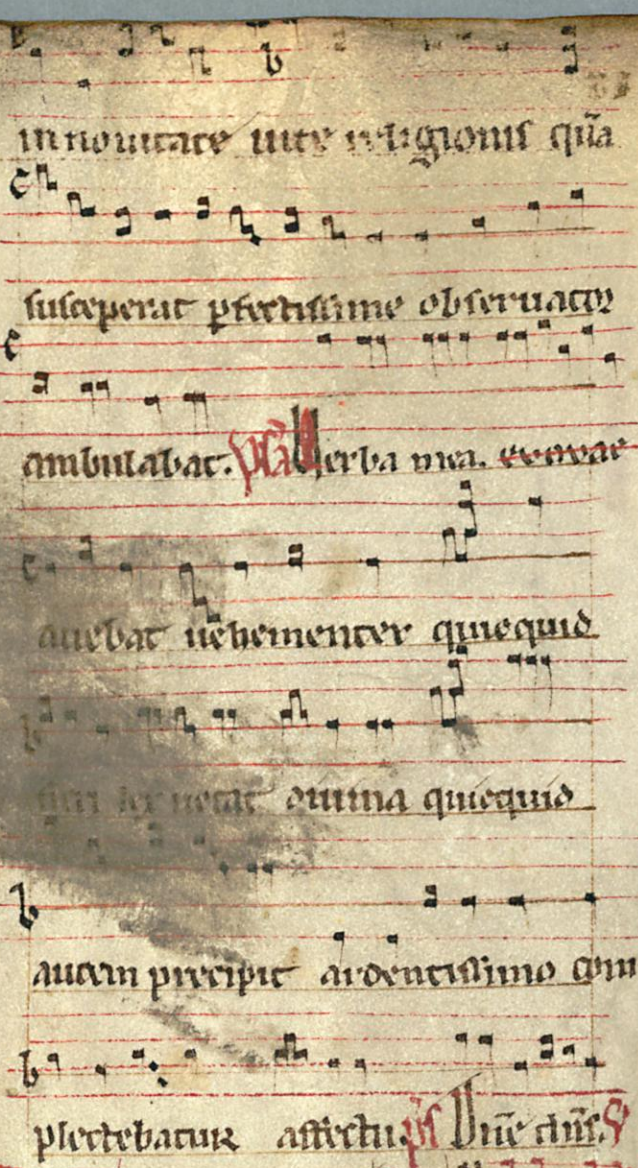 in nouitate uite religionis qua
susceperat pfectissime obseruator
ambulabat. ps Verba mea. euouae
auebat uehementer quicquid
lex uetat omnia quicquid
autem precipit ardentissimo com
plectebatur affectu. ps Dne